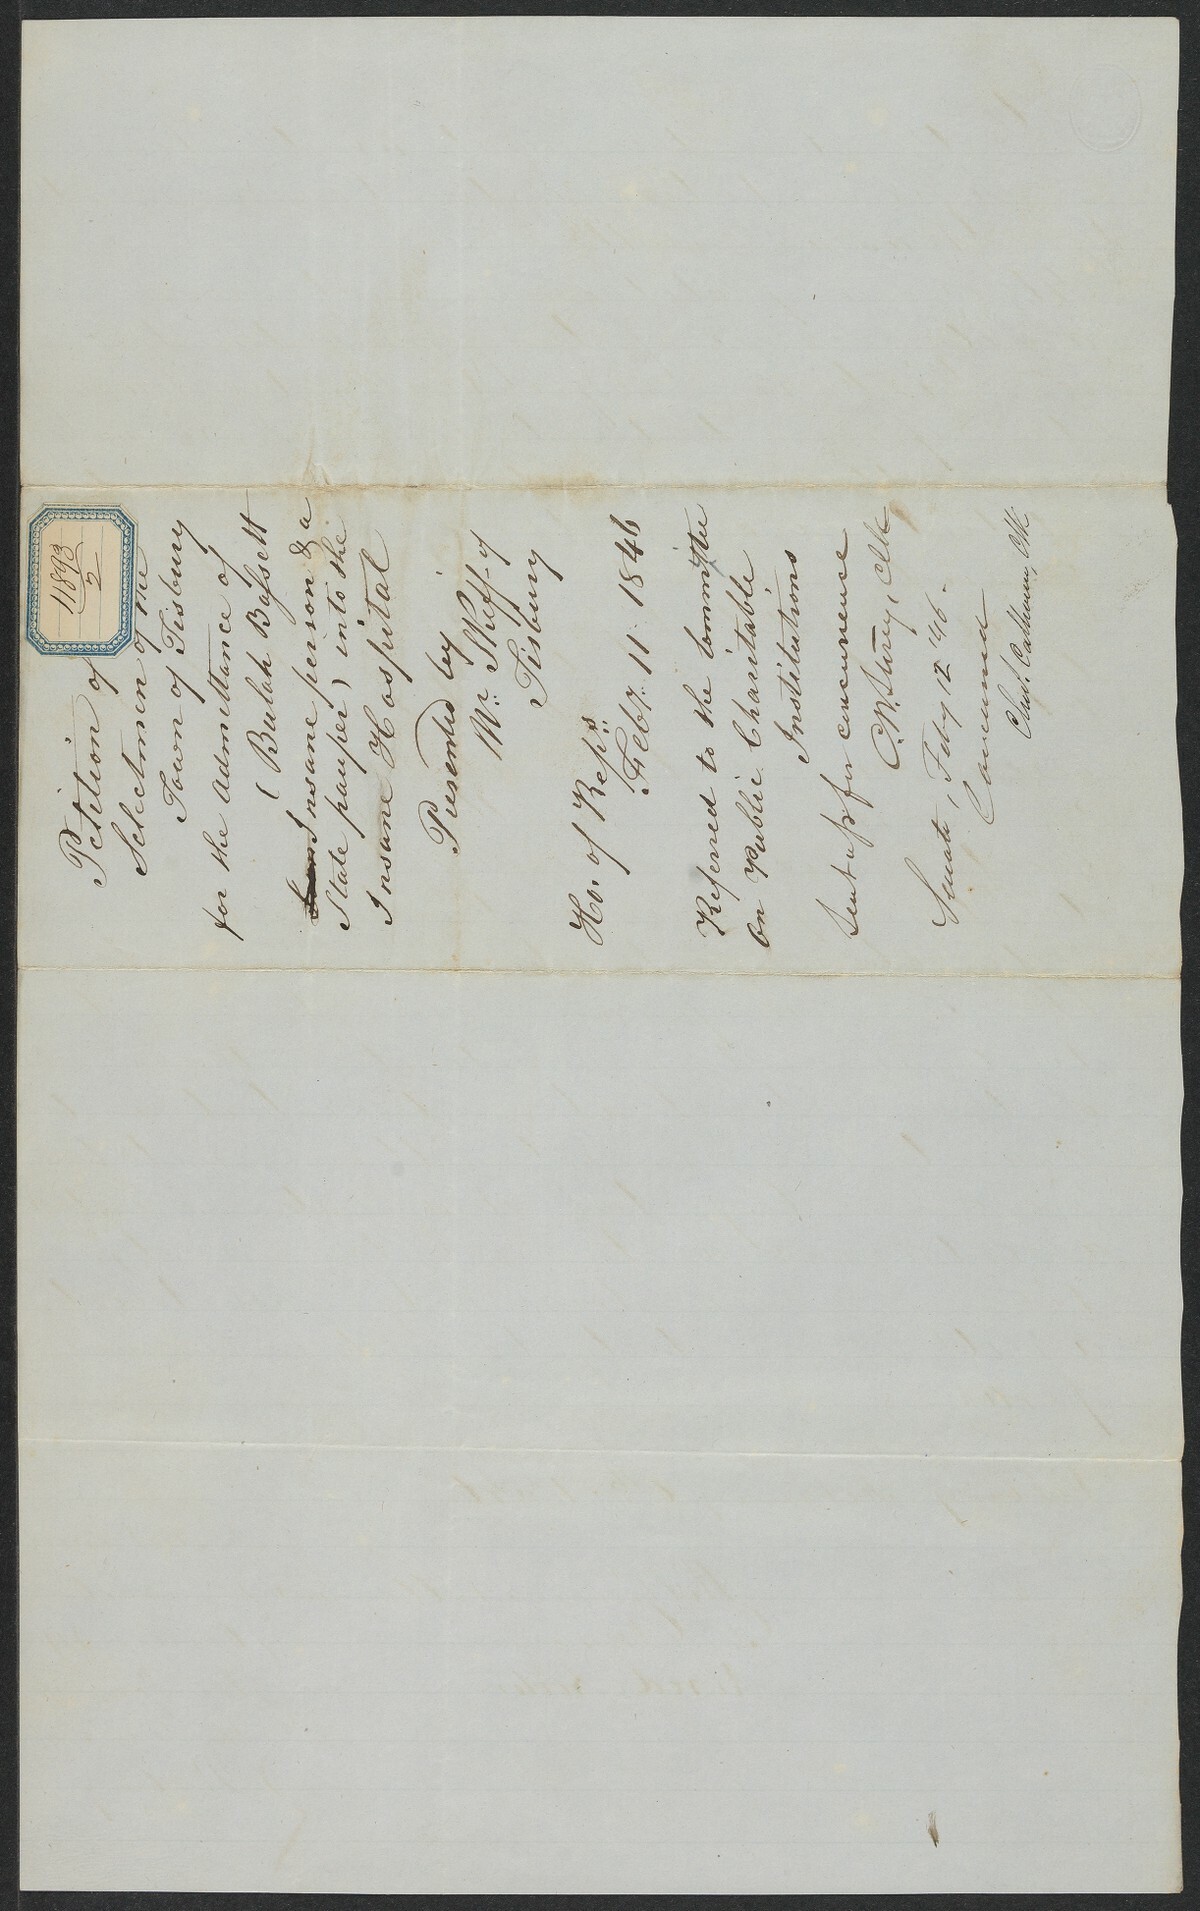 11893
2
Petition of
Selectmen of the
Town of Tisbury
for the admittance of
( Bulah Baſsett
Insane person & a
State pauper ) into the
Insane Hospital
Presented by
Mr. Skiff of
Tisbury
Ho. of Reps.
Feby. 11. 1846
Referred to the Committee
on Public Charitable
Institutions
Sent up for concurrence
C.W. Storey, Clk
Senate, Feby 12 '46.
Concurred
Chas. Calhoun, Clk